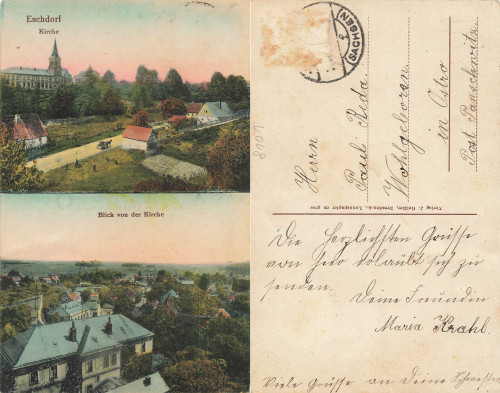 Eschdorf
Kirche
Blick von der Kirche
(SACHSEN)
8101
Herrn
Paul Reda
Wohlgeboren
in Ostro
Post Panschwitz
Verlag J. Geißler, Dresden-A.
Die herzlichsten Grüsse
von hier erlaubt sich zu
senden.
Deine Freundin
Maria Krahl.
Viele Grüsse an Deine Schwester